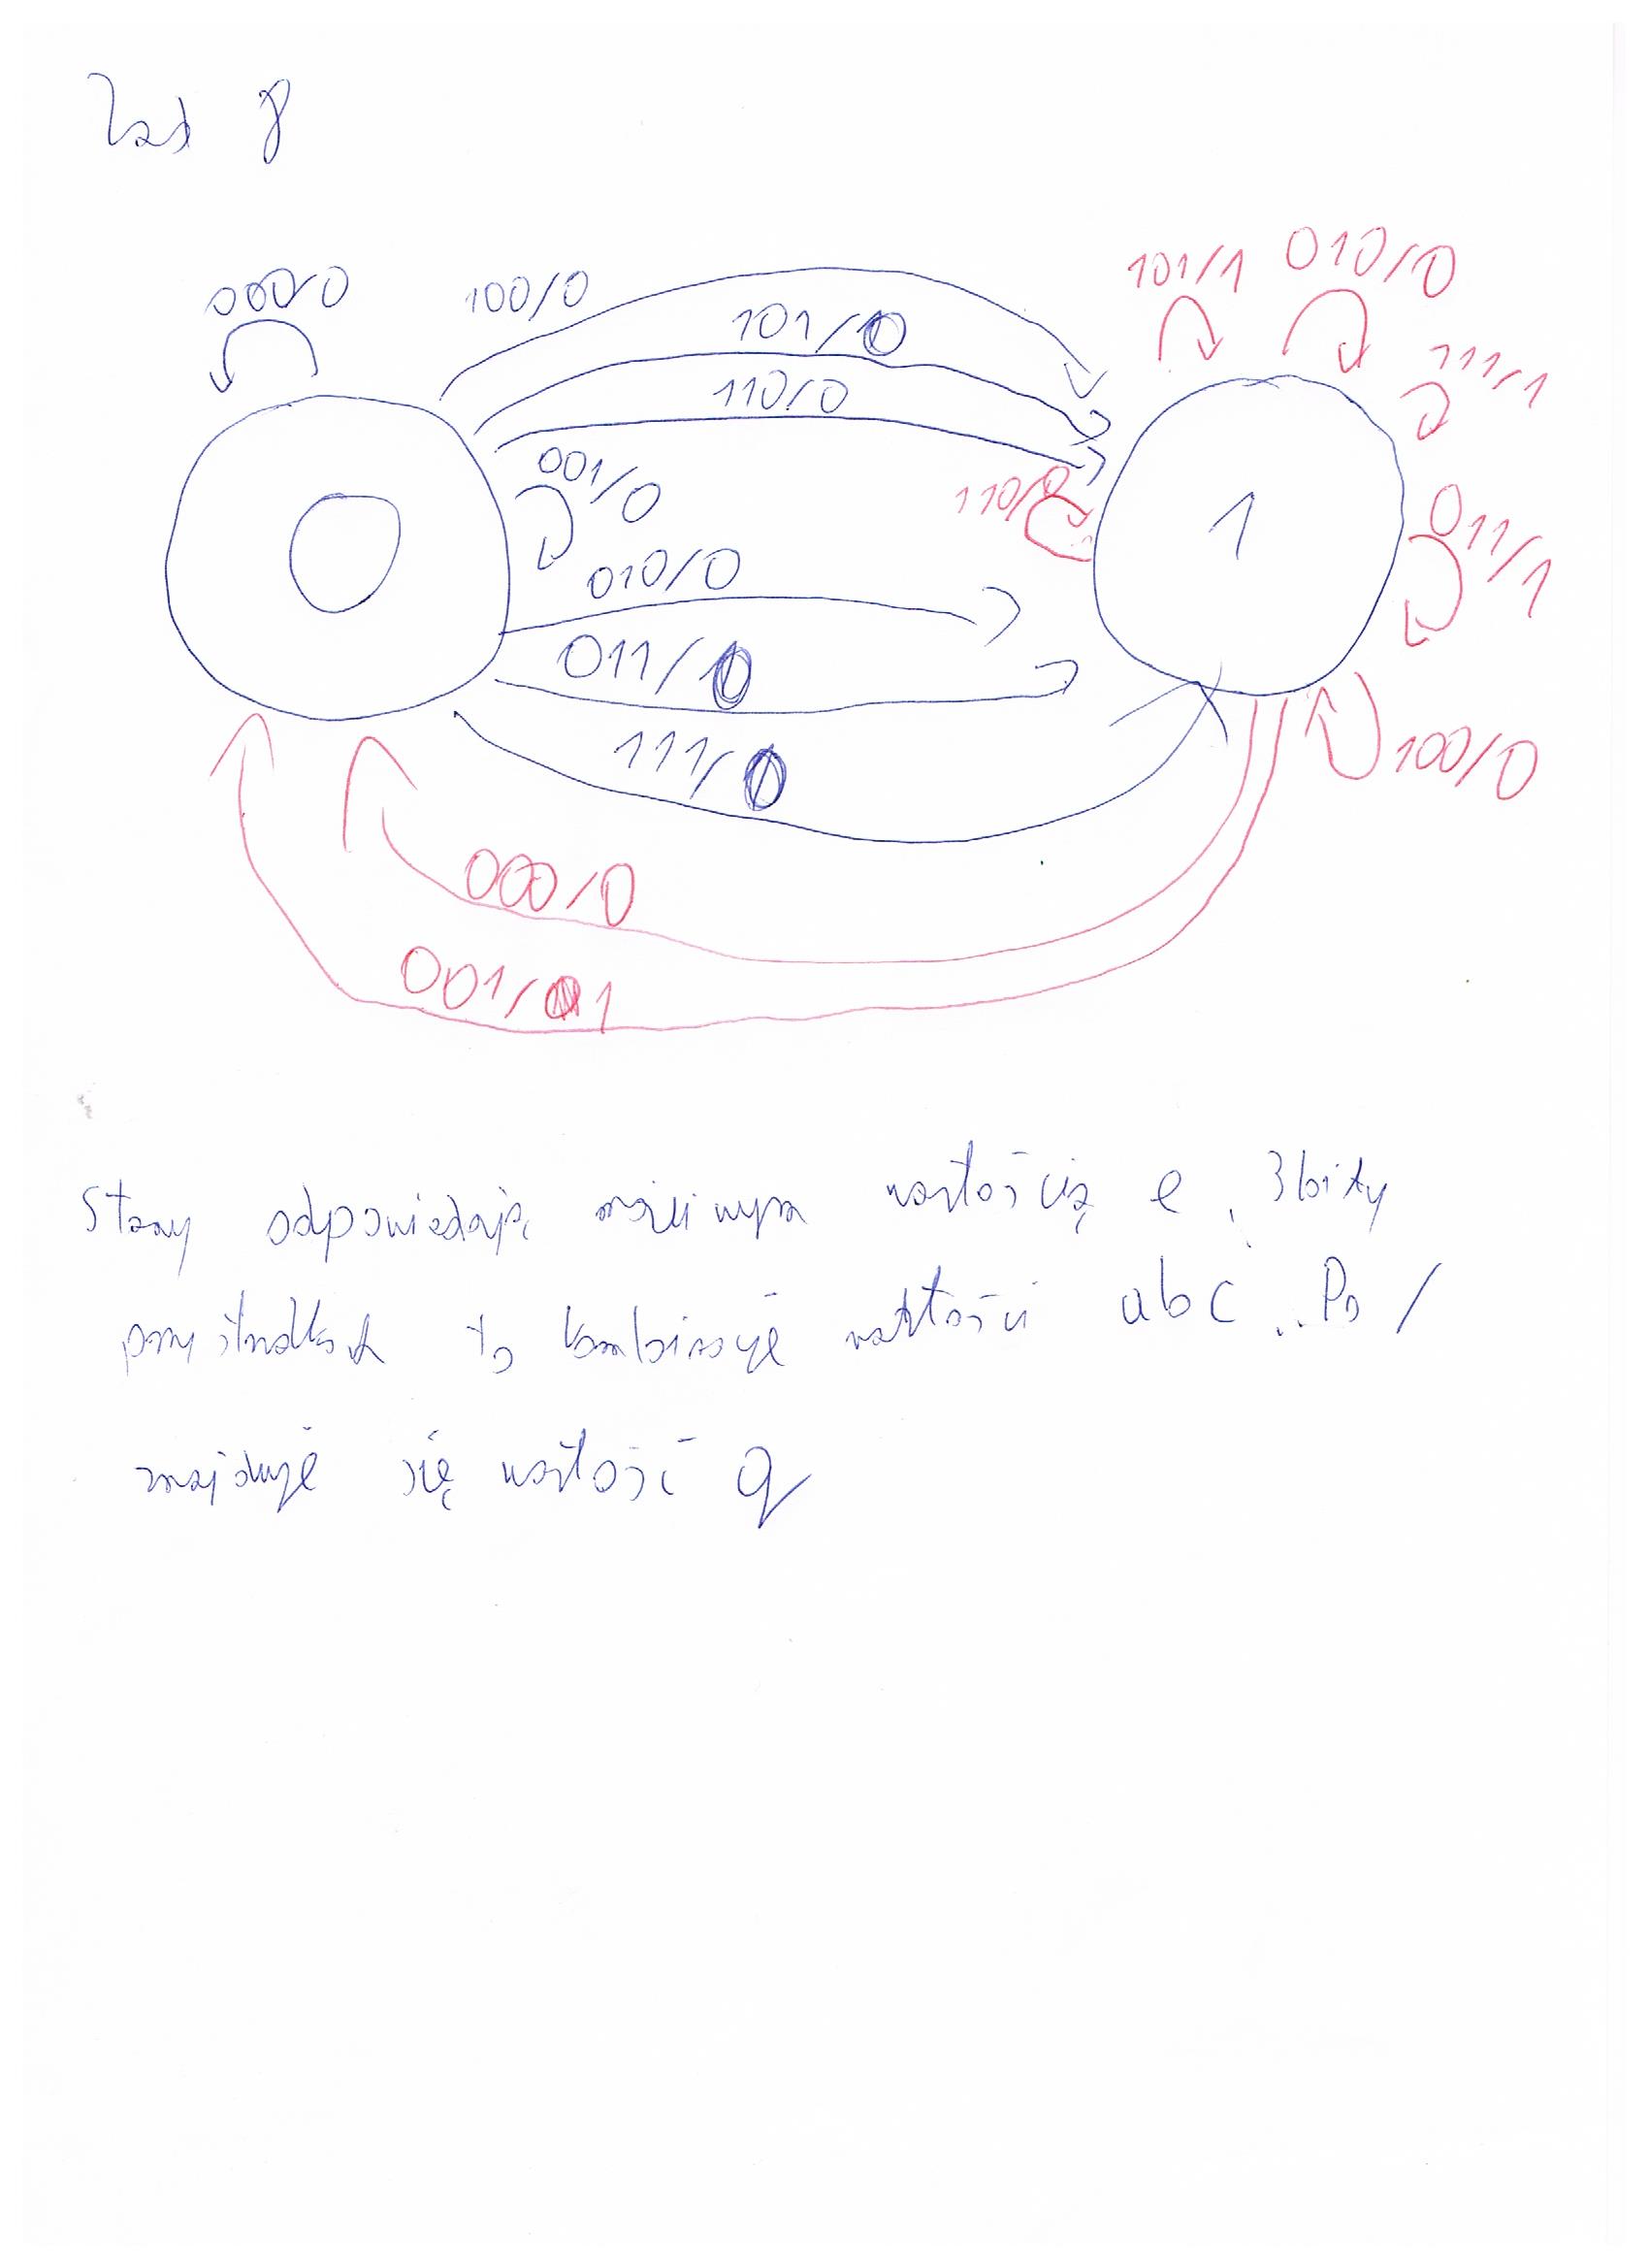 Zad 8
101/1 010/0
000/0 100/0
101/0
111/1
110/0
001/0
110/0
0
1
011/1
010/0
011/0
111/0
100/0
000/0
001/1
Stany odpowiadają możliwym wartością e, 3 bity
przy strzałkach to kombinacje wartości abc. Po /
znajduje się wartość q